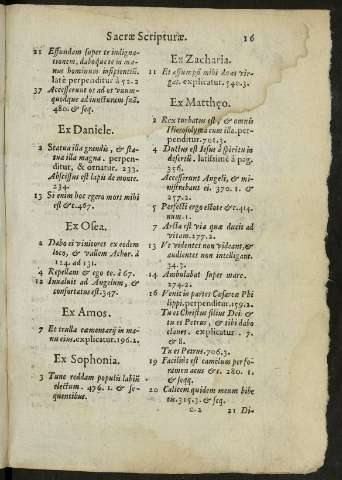 Sacræ Scripturæ. 16
21 Effundam super te indigna-
tionem, daboque te in ma-
nus hominum insipientiũ.
latè perpenditur à 52.2
37 Accesserunt os ad os unum-
quodque ad iuncturam suã.
480. & seq.
Ex Daniele.
2 Statua illa grandis, & sta-
tua illa magna. perpen-
ditur, & ornatur. 233.
Abscissus est lapis de monte.
234.
13 Si enim hoc egero mors mihi
est &c.467.
Ex Osea.
2 Dabo ei vinitores ex eodem
loco, & vallem Achor. à
124. ad 131.
4 Repellam & ego te. à 67.
12 Invaluit ad Angelum, &
confortatus est.347.
Ex Amos.
7 Et trulla cæmentarij in ma-
nu eius.explicatur.196.2.
Ex Sophonia.
3 Tunc reddam populis labiũ
electum. 476. 1. & se-
quentibus.
Ex Zacharia.
11 Et assumpsi mihi duas vir-
gas. explicatur. 540.3.
Ex Mattheo.
2 Rex turbatus est, & omnis
Hierosolyma cum illo. per-
penditur.701.3.
4 Ductus est Iesus à spiritu in
desertũ. latissimè à pag.
356.
Accesserunt Angeli, & mi-
nistrabant ei. 370. 1. &
257.2.
5 Perfecti ergo estote &c.414.
num.1.
7 Arcta est via quæ ducit ad
vitam.277.2.
13 Ut videntes non videant, &
audientes non intelligant.
34.3.
14 Ambulabat super mare.
274.2.
16 Venit in partes Cæsareæ Phi
lippi.perpenditur.159.2.
Tu es Christus filius Dei: &
tu es Petrus, & tibi dabo
claves. explicatur. 7.
& 8.
Tu es Petrus.706.3.
19 Facilius est camelum per fo-
ramen acus &c. 280. 1.
& seqq.
20 Calicem quidem meum bibe
tis.315.3. & seq.
c.2 21 Di-